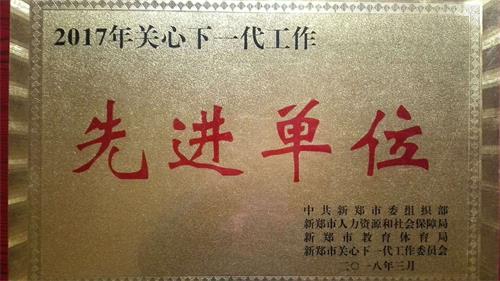 2017年关心下一代工作
先进单位
中共新郑市委组织部
新郑市人力资源和社会保障局
新郑市教育体育局
新郑市关心下一代工作委员会
二〇一八年三月